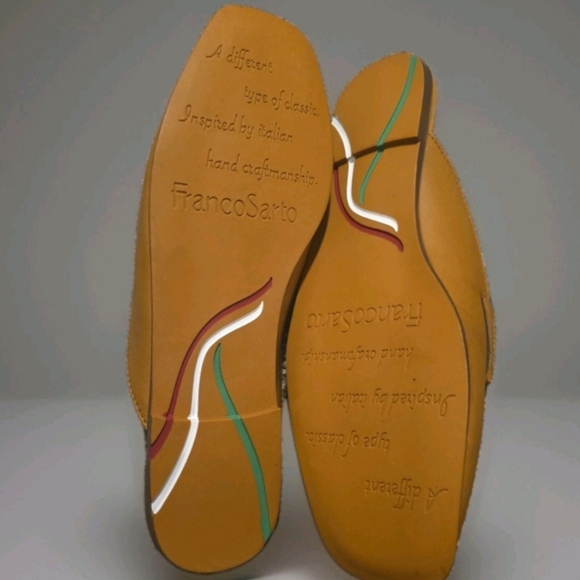 A different
type of classic.
Inspired by italian
hand craftmanship.
FrancoSarto
A different
type of classic.
Inspired by italian
hand craftmanship.
FrancoSarto